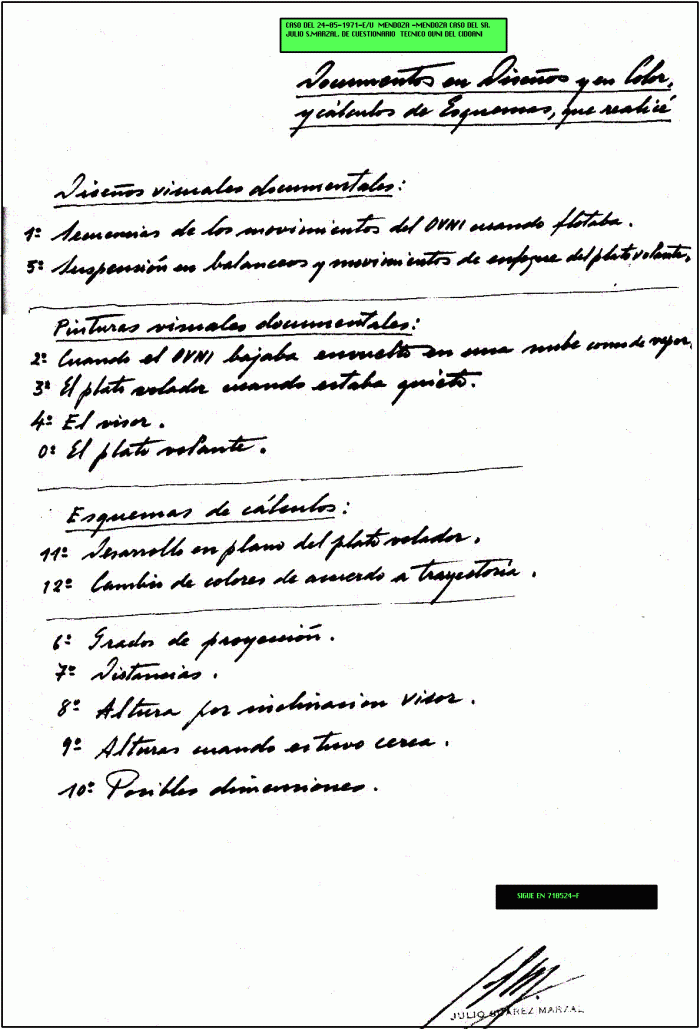 CASO DEL 24-05-1971-E/U MENDOZA -MENDOZA CASO DEL SR.
JULIO S.MARZAL. DE CUESTIONARIO TECNICO OUNI DEL CIDOANI
Documentos en Diseños y en Color,
y cálculos de Esquemas, que realicé
Diseños visuales documentales:
1º Secuencias de los movimientos del OVNI cuando flotaba.
5º Suspensión en balanceos y movimientos de enfoque del plato volante.
Pinturas visuales documentales:
2º Cuando el OVNI bajaba envuelto en una nube como de vapor.
3º El plato volador cuando estaba quieto.
4º El visor.
0º El plato volante.
Esquemas de cálculos:
11º Desarrollo en plano del plato volador.
12º Cambio de colores de acuerdo a trayectoria.
6º Grados de proyección.
7º Distancias.
8º Altura por inclinacion visor.
9º Alturas cuando estuvo cerca.
10º Posibles dimensiones.
SIGUE EN 710524-F
JULIO SUAREZ MARZAL